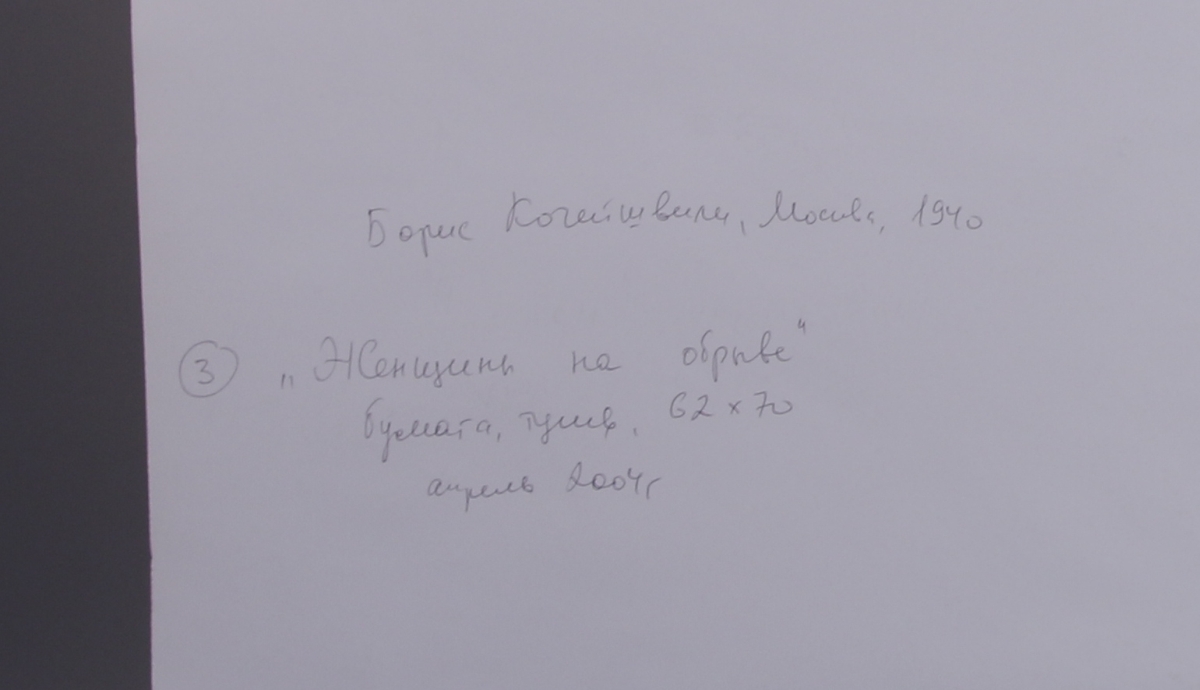 Борис Кочейшвили, Москва, 1940
3 „Женщины на обрыве“
бумага, тушь, 62 x 70
апрель 2004г